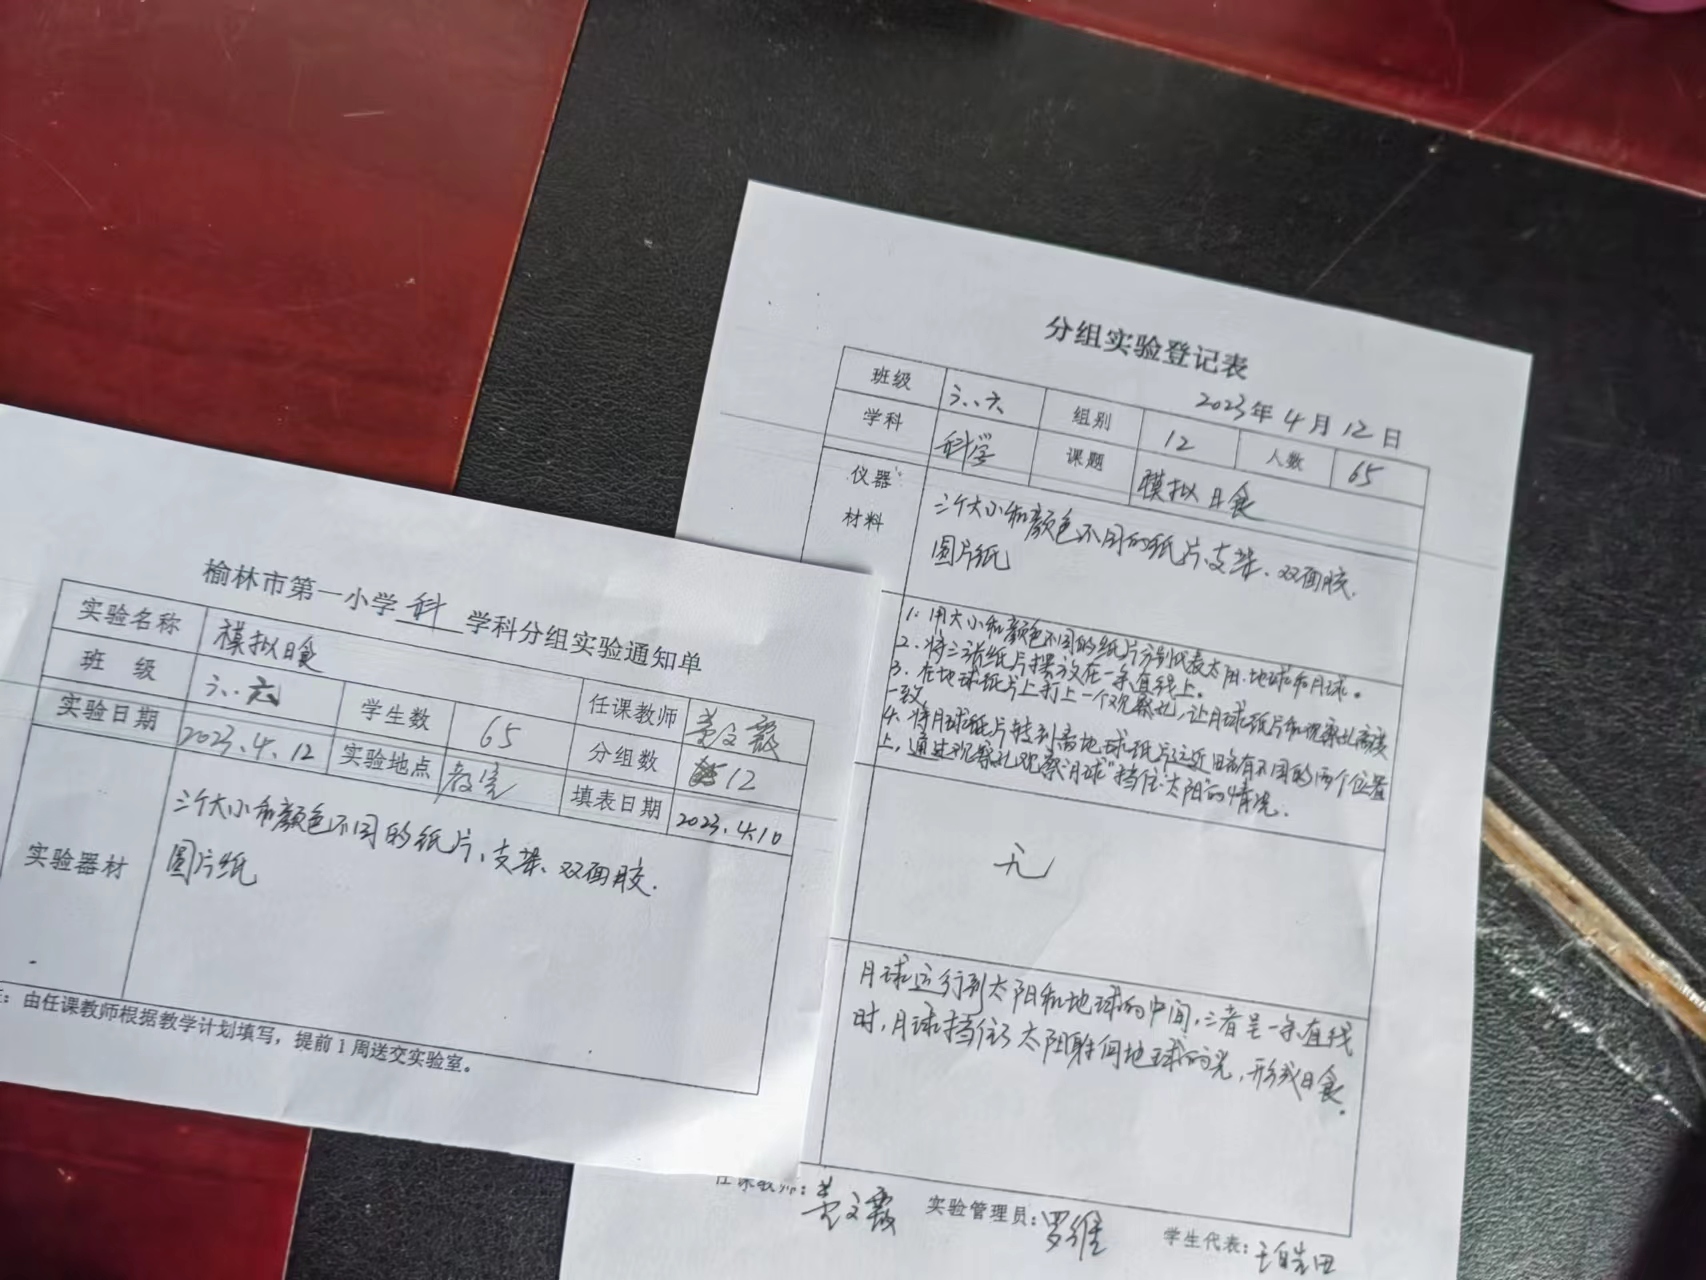 榆林市第一小学科学科分组实验通知单
实验名称 模拟日食
班 级 六.六 学生数 65 任课教师
实验日期 2023.4.12 实验地点 教室 分组数 12
填表日期 2023.4.10
实验器材
三个大小和颜色不同的纸片、支架、双面胶.
圆片纸
由任课教师根据教学计划填写，提前1周送交实验室。
分组实验登记表
2023年4月12日
班级 六.六 组别 12 人数 65
学科 科学 课题 模拟日食
仪器
材料
三个大小和颜色不同的纸片、支架、双面胶.
圆片纸
1. 用大小和颜色不同的纸片分别代表太阳、地球和月球。
2. 将三张纸片摆放在一条直线上。
3. 在地球纸片上打上一个观察孔，让月球纸片和观察孔高度
一致
4. 将月球纸片转到离地球纸片远近略有不同的两个位置
上，通过观察孔观察“月球”挡住“太阳”的情况.
无
月球运行到太阳和地球的中间，三者呈一条直线
时，月球挡住了太阳射向地球的光，形成日食.
任课教师：
实验管理员：罗维
学生代表：